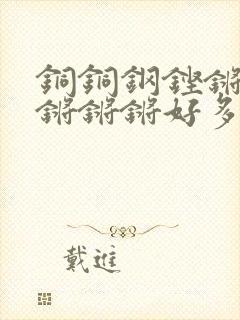 銅銅鋼鏗鏘
鏘鏘鏘好多
戴進